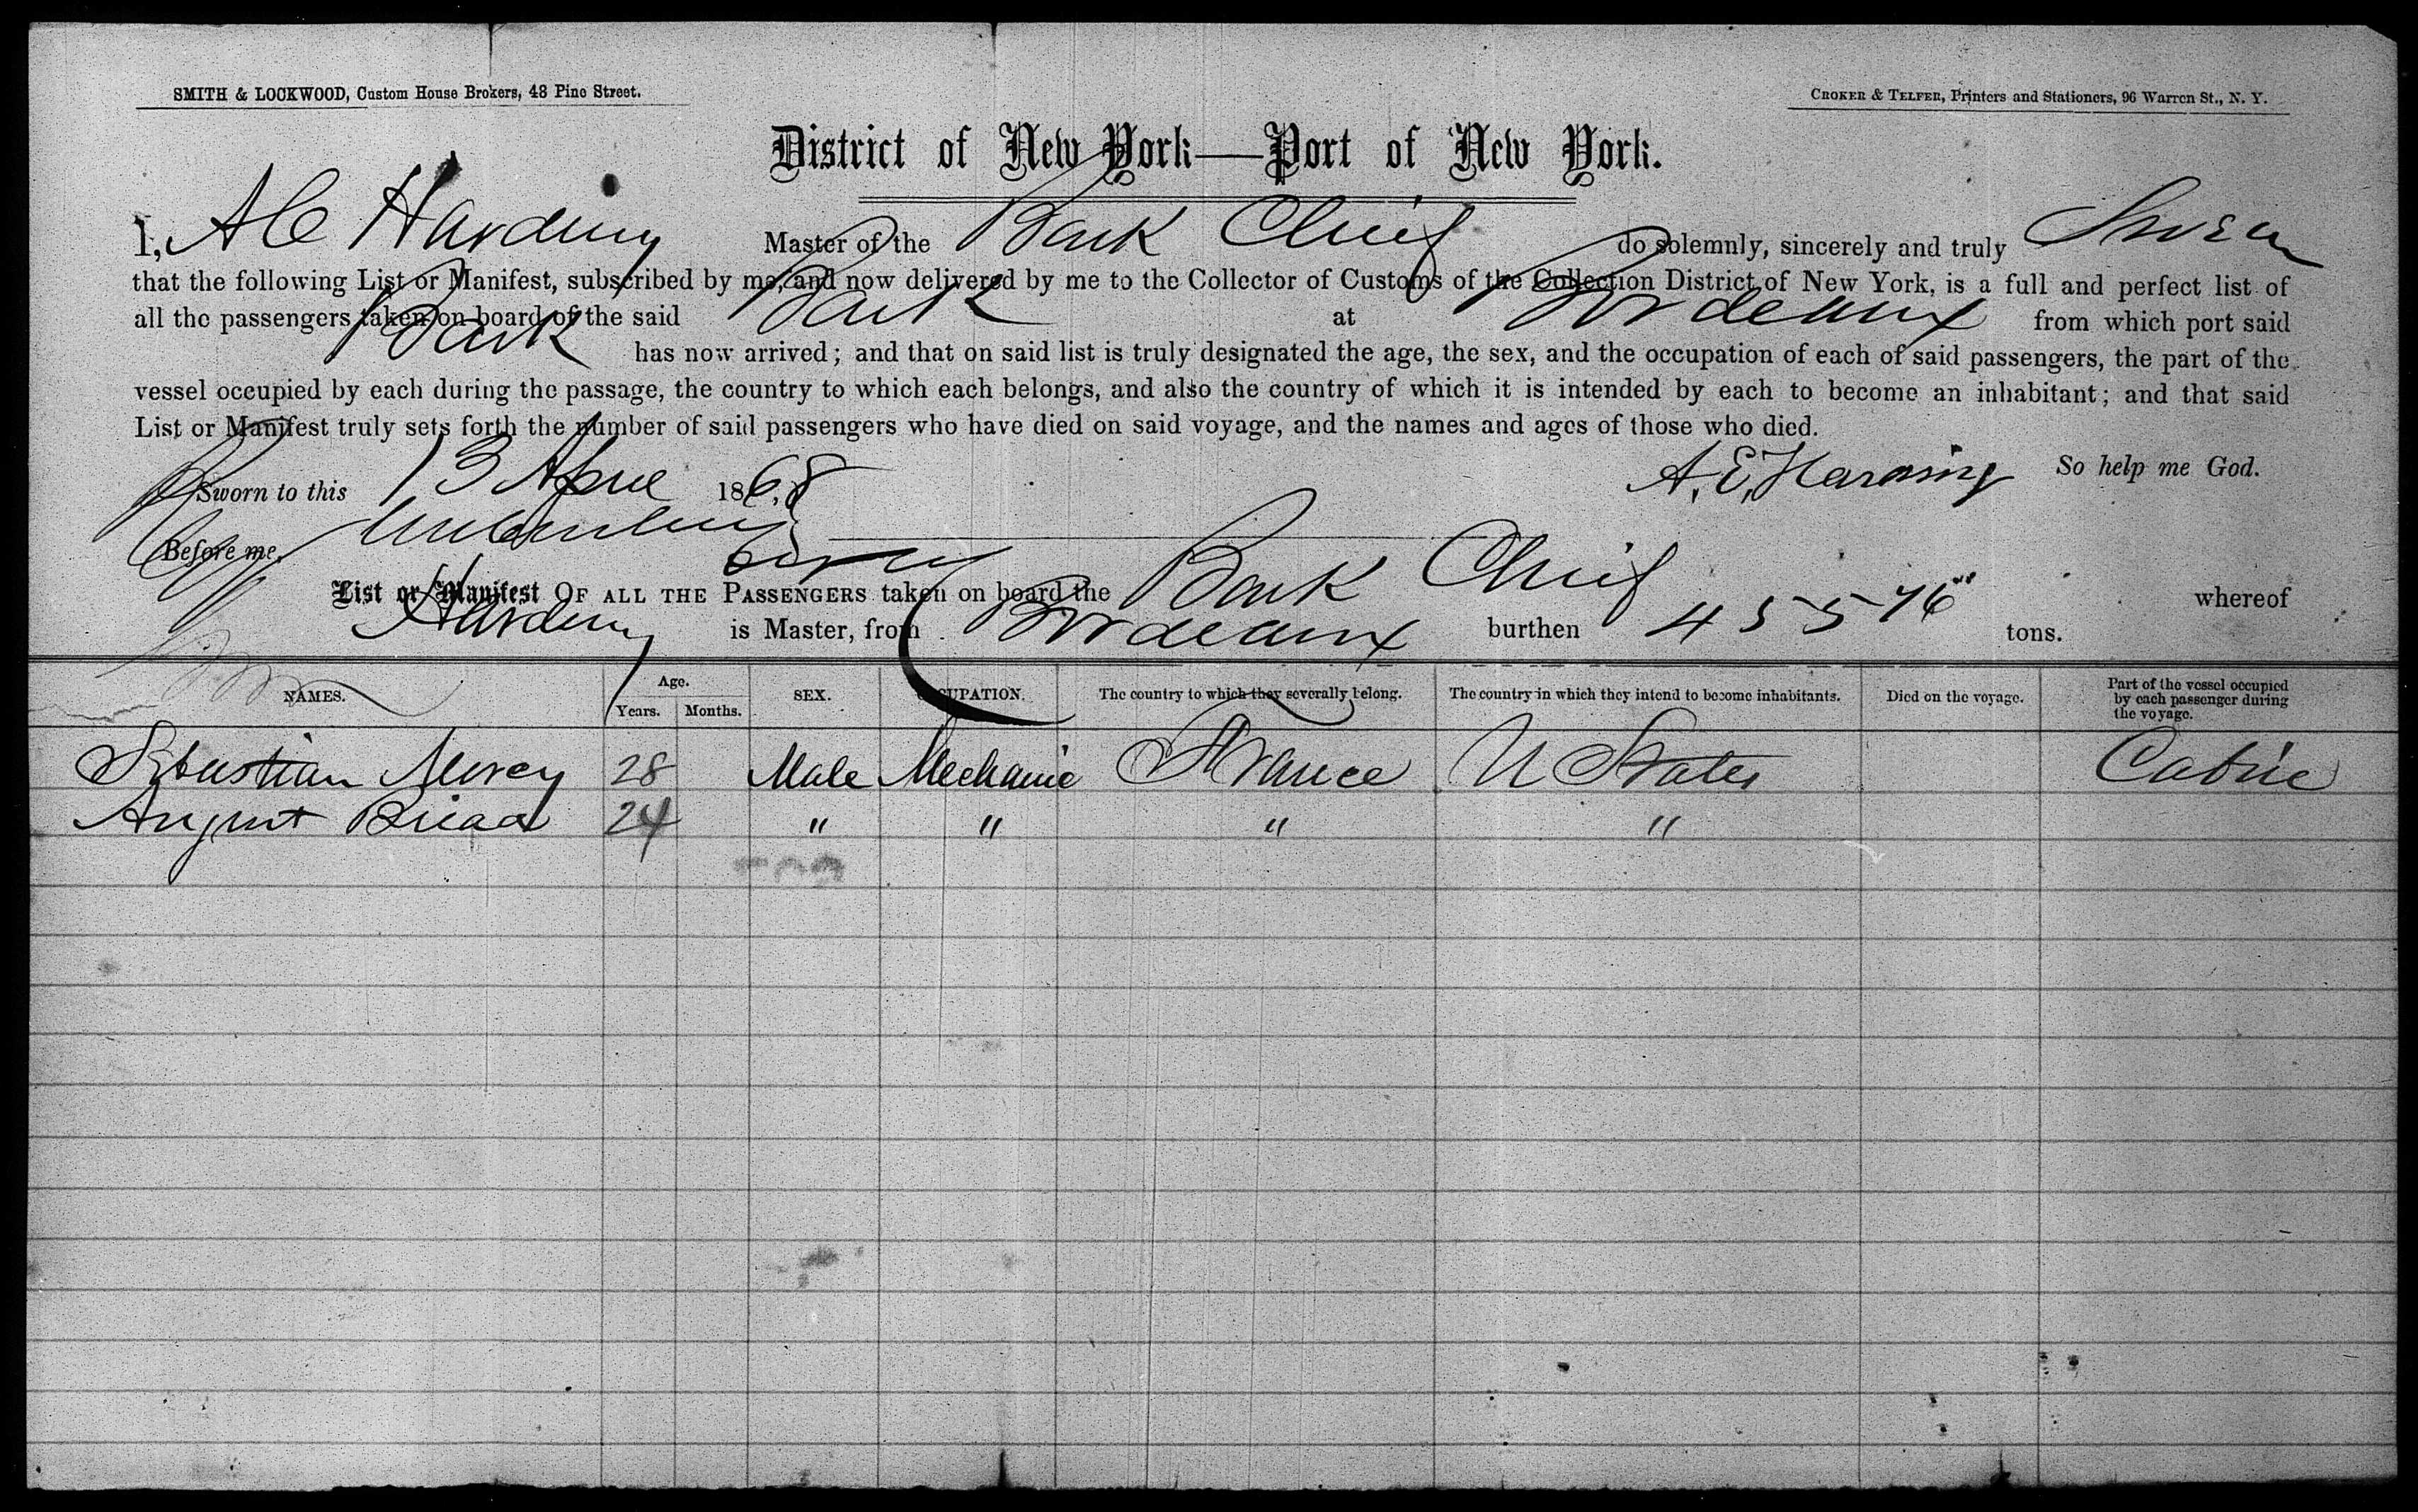 SMITH & LOCKWOOD, Custom House Brokers, 48 Pine Street.
CROKER & TELFER, Printers and Stationers, 96 Warren St., N. Y.
District of New York—Port of New York.
I, A E Harding Master of the Bark Chief do solemnly, sincerely and truly Swear
that the following List or Manifest, subscribed by me, and now delivered by me to the Collector of Customs of the Collection District of New York, is a full and perfect list of
all the passengers taken on board of the said Bark at Bordeaux from which port said
Bark has now arrived; and that on said list is truly designated the age, the sex, and the occupation of each of said passengers, the part of the
vessel occupied by each during the passage, the country to which each belongs, and also the country of which it is intended by each to become an inhabitant; and that said
List or Manifest truly sets forth the number of said passengers who have died on said voyage, and the names and ages of those who died.
Sworn to this 13 April 1868 A. E. Harding So help me God.
Before me,
List or Manifest OF ALL THE PASSENGERS taken on board the Bark Chief whereof
Harding is Master, from Bordeaux burthen 455 76 tons.
NAMES. Age. Years. Months. SEX. OCCUPATION. The country to which they severally belong. The country in which they intend to become inhabitants. Died on the voyage. Part of the vessel occupied by each passenger during the voyage.
Sebastian 28 Male Mechanic France U States Cabin
August 24 " " " "